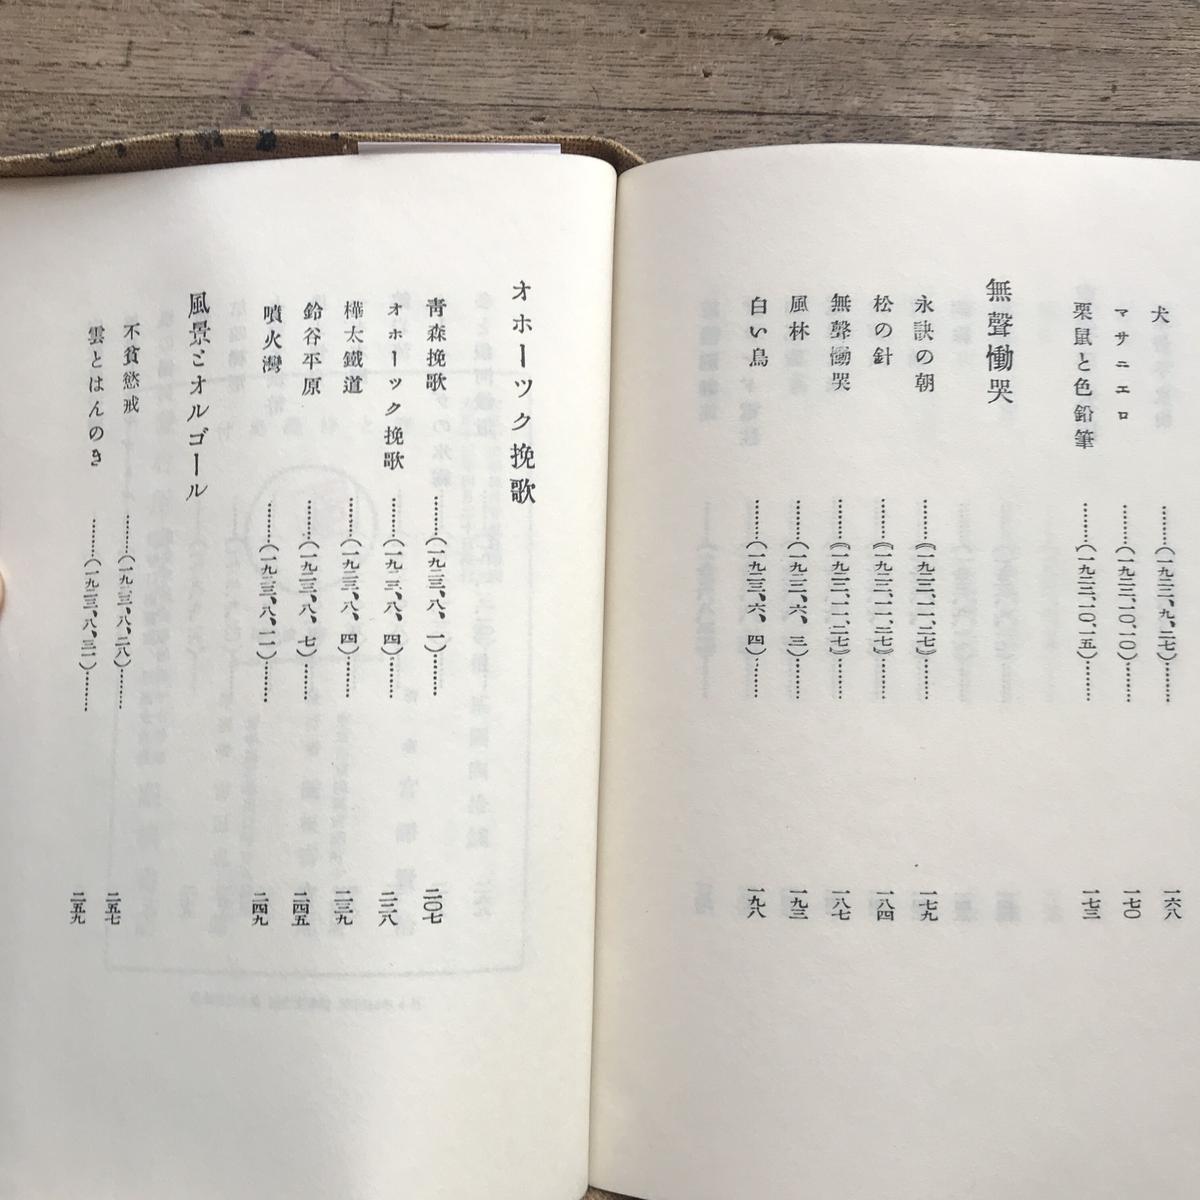 犬………(一九二二、九、二七)………一六八
マサニエロ………(一九二二、一〇、一〇)………一七〇
栗鼠と色鉛筆………(一九二二、一〇、一五)………一七三
無聲慟哭
永訣の朝………((一九二二、一一、二七))………一七九
松の針………((一九二二、一一、二七))………一八四
無聲慟哭………((一九二二、一一、二七))………一八七
風林………(一九二三、六、三)………一九三
白い鳥………(一九二三、六、四)………一九八
オホーツク挽歌
靑森挽歌………(一九二三、八、一)………二〇七
オホーツク挽歌………(一九二三、八、四)………二二八
樺太鐵道………(一九二三、八、四)………二三九
鈴谷平原………(一九二三、八、七)………二四五
噴火灣………(一九二三、八、一一)………二四九
風景とオルゴール
不貪慾戒………(一九二三、八、二八)………二五七
雲とはんのき………(一九二三、八、三一)………二五九